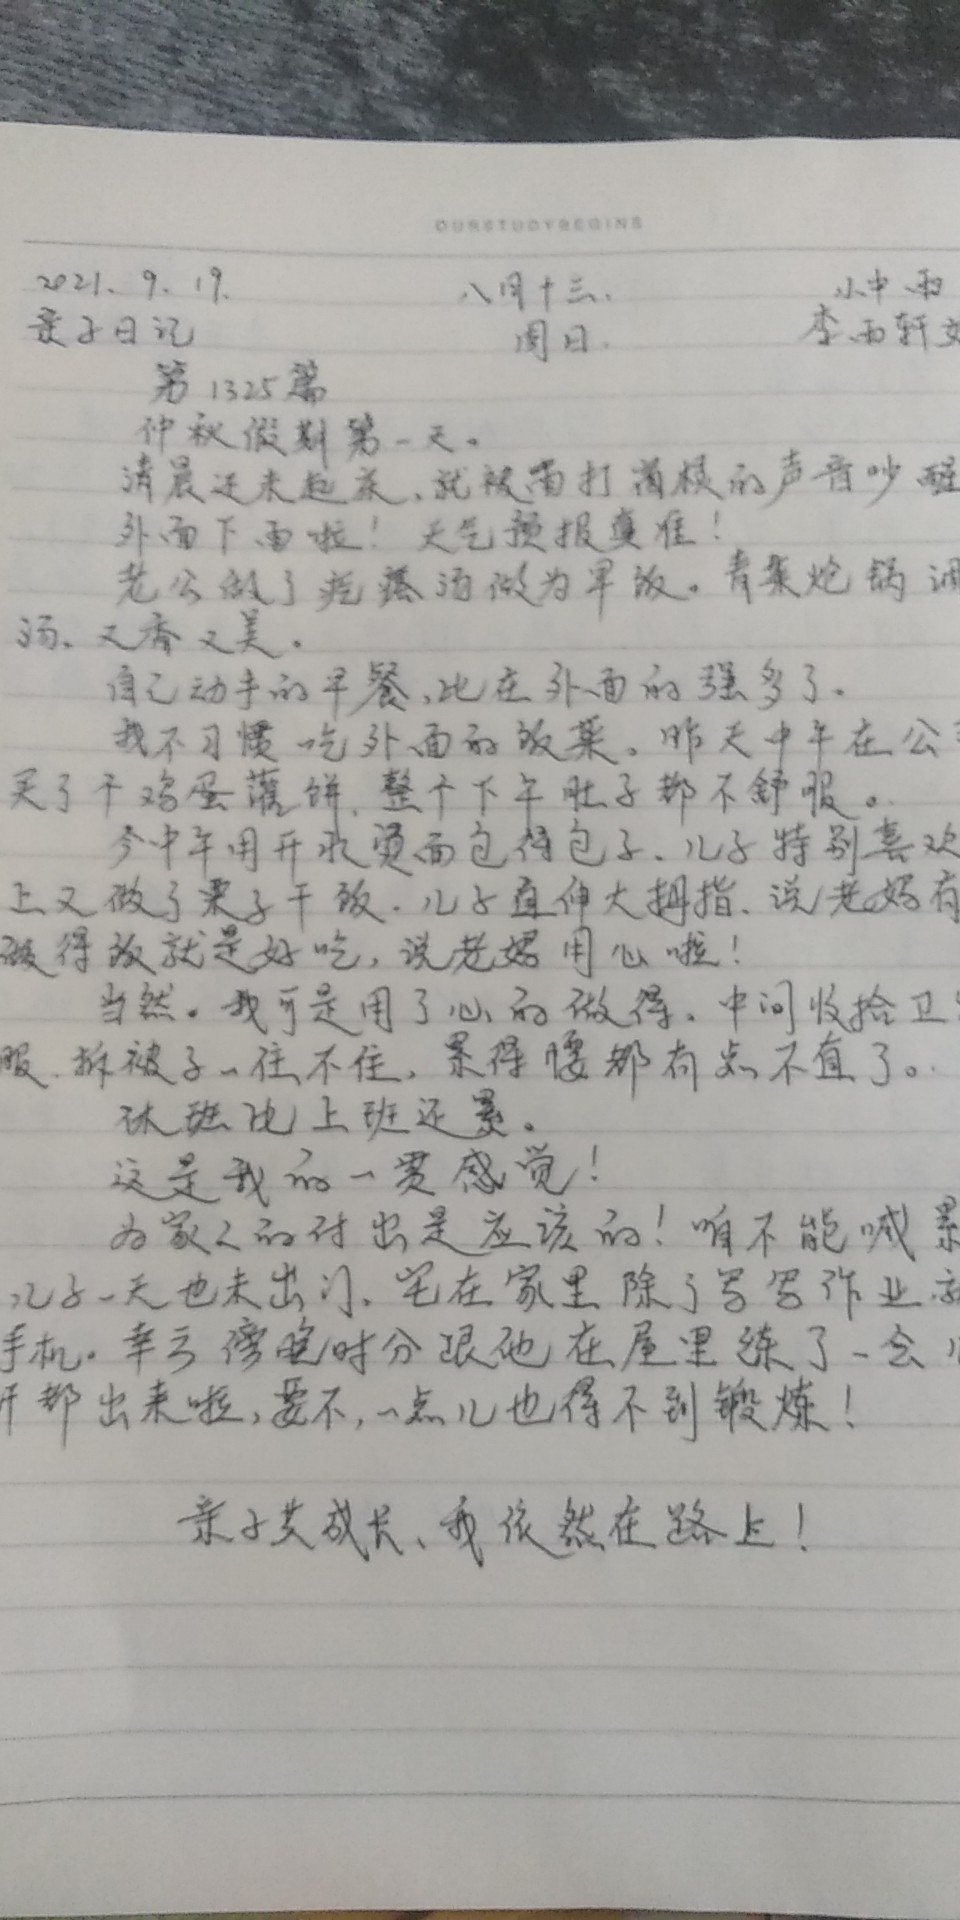 OURSTUDYBEGINS
2021. 9. 19. 八月十三. 小中雨
亲子日记 周日. 李雨轩
第1325篇
仲秋假期第一天。
清晨还未起床、就被雨打 的声音吵醒
外面下雨啦！天气预报真准！
老公做了疙瘩汤做为早饭。青菜炝锅
汤、又香又美。
自己动手的早餐、比在外面的强多了。
我不习惯吃外面的饭菜。昨天中午在公
买了个鸡蛋灌饼、整个下午肚子都不舒服。
今中年用开水烫面包得包子、儿子特别喜欢
上又做了栗子干饭. 儿子直伸大拇指、说老妈有
做得饭就是好吃，说老妈用心啦！
当然。我可是用了心的做得. 中间收拾卫
服. 拆被子一住不住, 累得腰都有点不直了。
休班比上班还累。
这是我的一贯感觉！
为家人的付出是应该的！咱不能喊累
儿子一天也未出门、宅在家里除了写写作业
手机。幸亏傍晚时分跟他在屋里练了一会
都出来啦，要不，一点儿也得不到锻炼！
亲子共成长、我依然在路上！